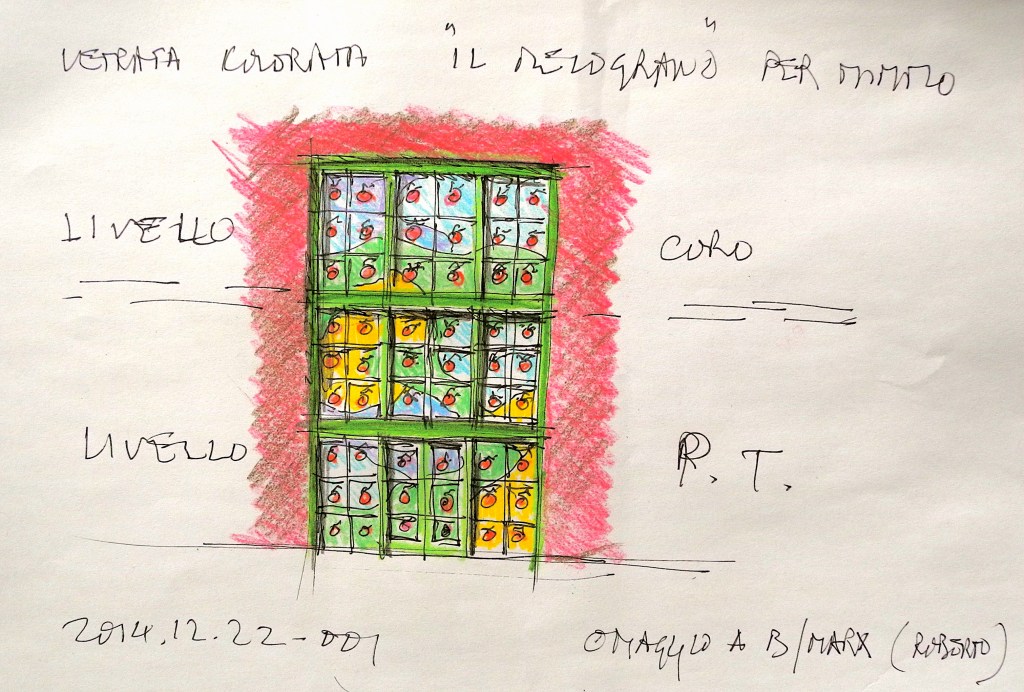 VETRATA KOLORATA "IL MELOGRANO" PER MIMMO
LIVELLO
CORO
LIVELLO
P. T.
2014.12.22-001
OMAGGIO A B/MARX (ROBERTO)